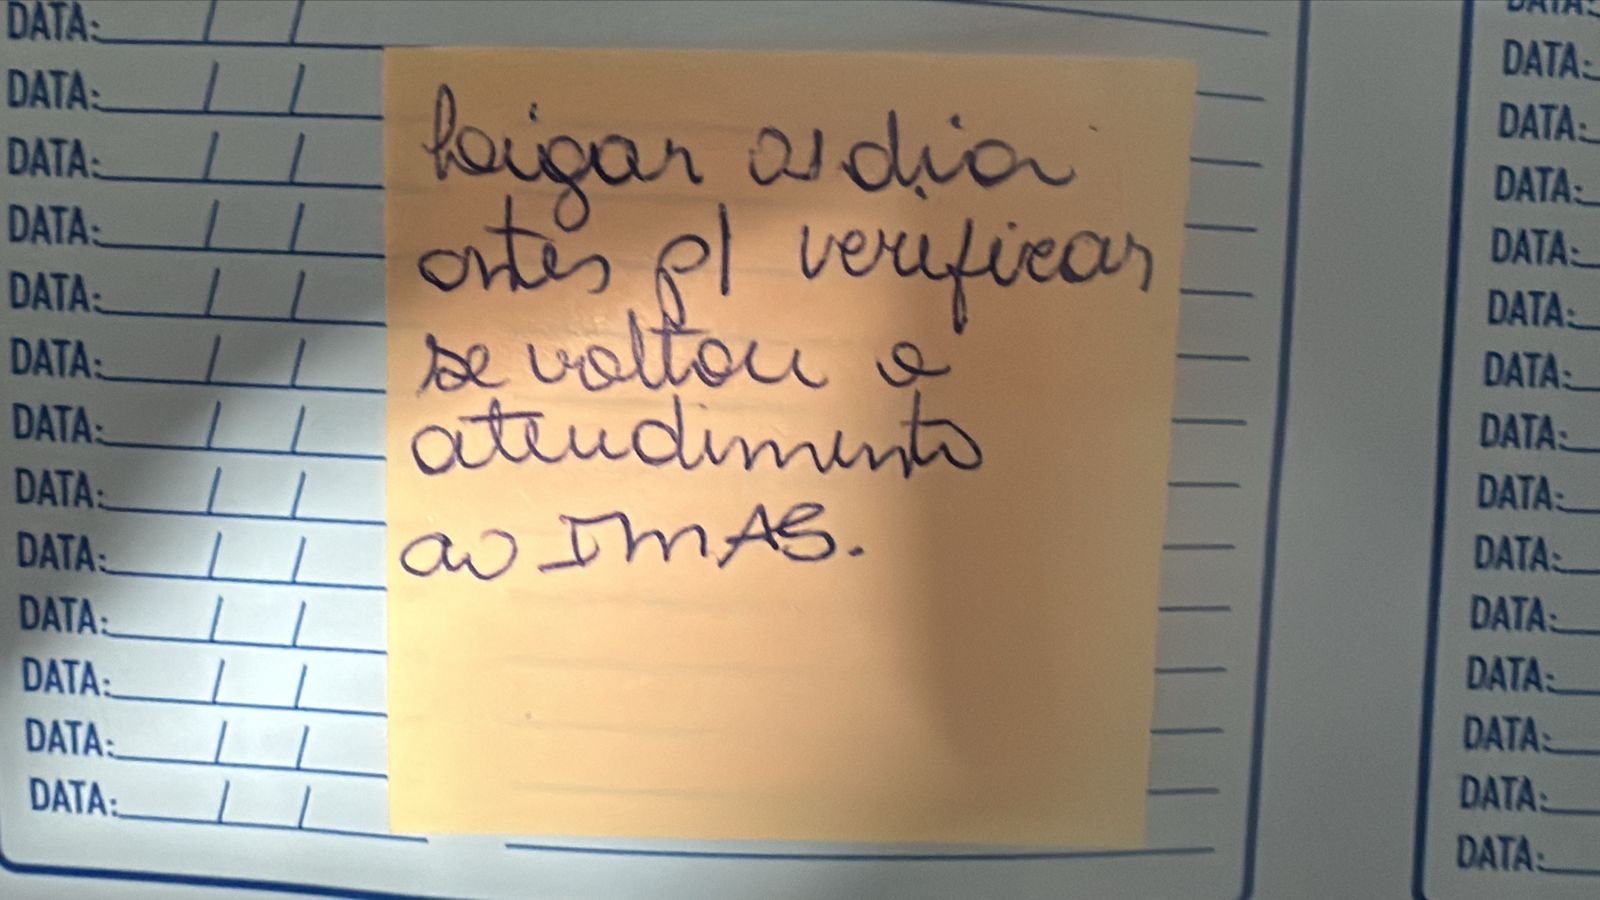 DATA: / /
DATA: / /
DATA: / /
DATA: / /
DATA: / /
DATA: / /
DATA: / /
DATA: / /
DATA: / /
DATA: / /
DATA: / /
DATA: / /
DATA: / /
Ligar 01 dia
antes p/ verificar
se voltou o
atendimento
ao IMAS.
DATA:
DATA:
DATA:
DATA:
DATA:
DATA:
DATA:
DATA:
DATA:
DATA:
DATA:
DATA:
DATA:
DATA:
DATA: